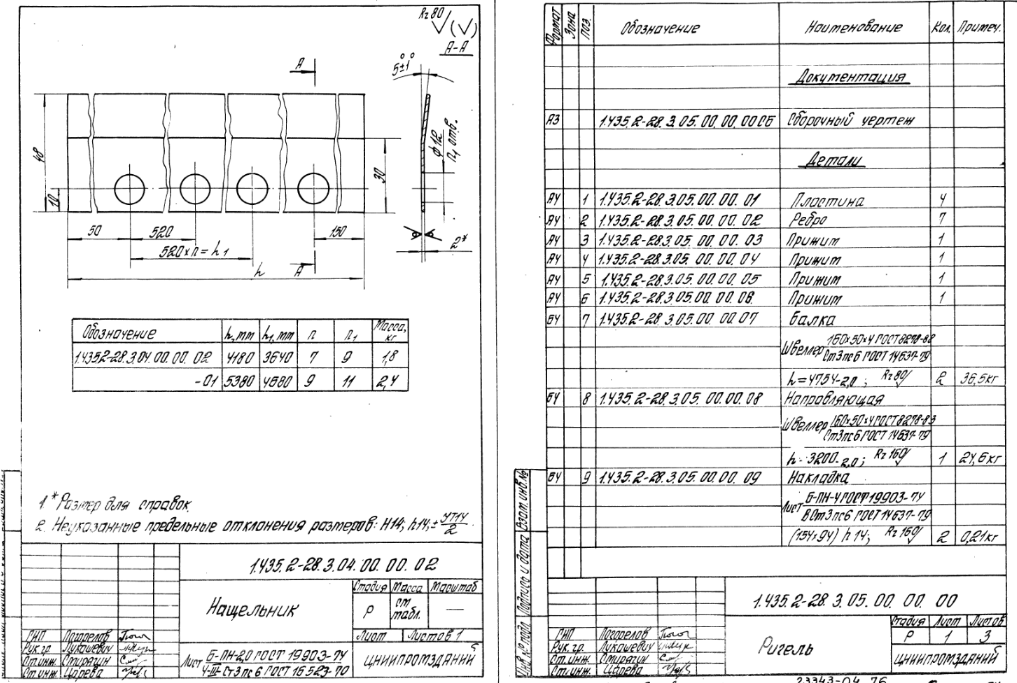 Rz80 √(√)
А-А
А
5±1°
48
10
30
ф12
n₁ отв.
50
520
150
520×n=h₁
А
2*
h
Обозначение h, мм h₁, мм n n₁ Масса, кг
1.435.2-28.3.04.00.00.02 4180 3640 7 9 1,8
-01 5380 4680 9 11 2,4
1 * Размер для справок
2. Неуказанные предельные отклонения размеров: H14; h14; ± IT14/2
1.435.2-28.3.04.00.00.02
Нащельник
Стадия Масса Масштаб
Р см. табл. —
Лист Листов 1
ГИП Погорелов
Рук.гр. Лукашевич
Ст.инж. Спирагин
Ст.инж. Царева
Лист Б-ПН-2,0 ГОСТ 19903-74
4-III-Ст3пс6 ГОСТ 16523-70
ЦНИИПРОМЗДАНИЙ
Формат Зона Поз. Обозначение Наименование Кол. Примеч.
Документация
А3 1.435.2-28.3.05.00.00.00СБ Сборочный чертеж
Детали
А4 1 1.435.2-28.3.05.00.00.01 Пластина 4
А4 2 1.435.2-28.3.05.00.00.02 Ребро 7
А4 3 1.435.2-28.3.05.00.00.03 Прижим 1
А4 4 1.435.2-28.3.05.00.00.04 Прижим 1
А4 5 1.435.2-28.3.05.00.00.05 Прижим 1
А4 6 1.435.2-28.3.05.00.00.06 Прижим 1
БЧ 7 1.435.2-28.3.05.00.00.07 Балка
Швеллер 160×50×4 ГОСТ 8278-83
Ст3пс6 ГОСТ 14637-79
h=4754-2,0; Rz80 2 36,5кг
БЧ 8 1.435.2-28.3.05.00.00.08 Направляющая
Швеллер 160×50×4 ГОСТ 8278-83
Ст3пс6 ГОСТ 14637-79
h=3200-2,0; Rz160 1 24,6кг
БЧ 9 1.435.2-28.3.05.00.00.09 Накладка
Лист Б-ПН-4 ГОСТ 19903-74
ВСт3пс6 ГОСТ 14637-79
(154×94) h14; Rz160 2 0,21кг
Инв.№ подл. Подпись и дата Взам.инв.№
1.435.2-28.3.05.00.00.00
Ригель
Стадия Лист Листов
Р 1 3
ГИП Погорелов
Рук.гр. Лукашевич
Ст.инж. Спирагин
Ст.инж. Царева
ЦНИИПРОМЗДАНИЙ
23343-04 76